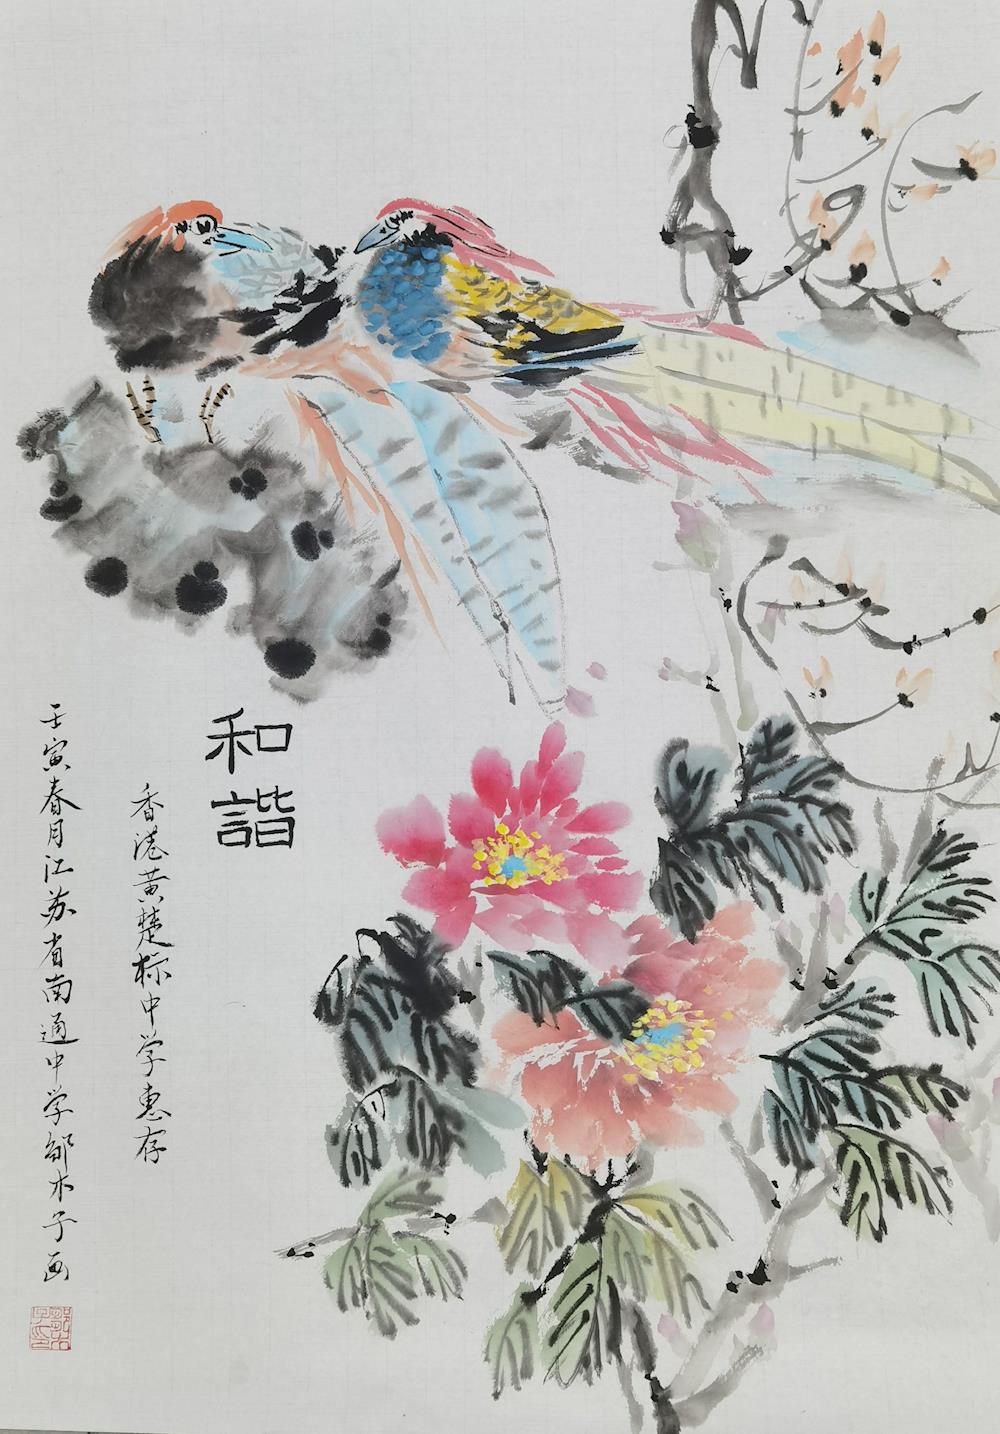 和諧
香港黄楚标中学惠存
壬寅春月江苏省南通中学邹木子画